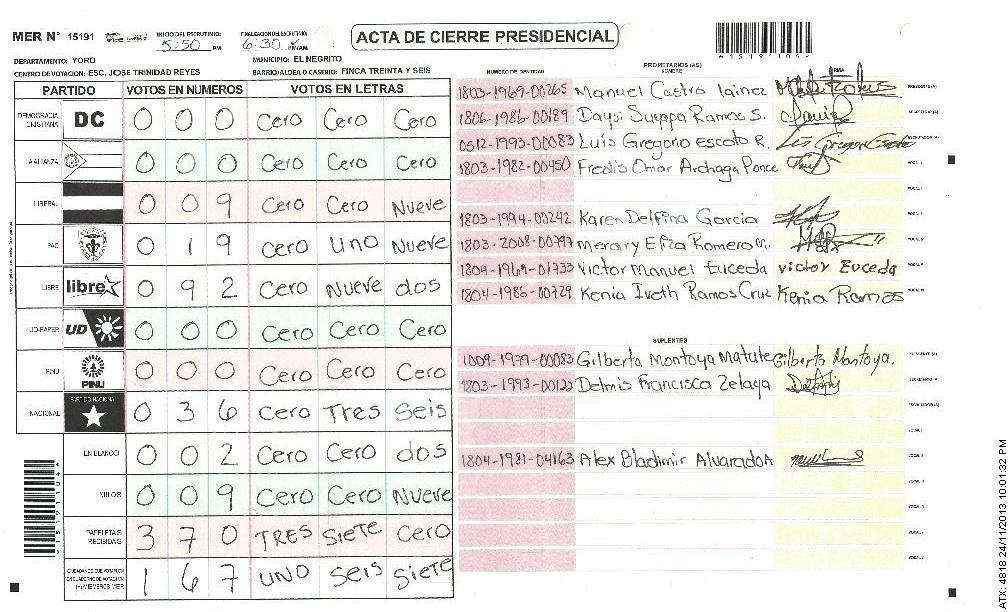 MER N° 15191 INICIO DEL ESCRUTINIO: 5:50 PM FINALIZACION DEL ESCRUTINIO: 6:30 PM/AM ACTA DE CIERRE PRESIDENCIAL
DEPARTAMENTO: YORO MUNICIPIO: EL NEGRITO
CENTRO DE VOTACION: ESC. JOSE TRINIDAD REYES BARRIO/ALDEA O CASERIO: FINCA TREINTA Y SEIS
PARTIDO VOTOS EN NUMEROS VOTOS EN LETRAS
DEMOCRACIA CRISTIANA DC 0 0 0 Cero Cero Cero
ALIANZA 0 0 0 Cero Cero Cero
LIBERAL 0 0 9 Cero Cero Nueve
PAC 0 1 9 Cero Uno Nueve
LIBRE libre 0 9 2 Cero Nueve dos
UD-FAPER UD 0 0 0 Cero Cero Cero
PINU PINU 0 0 0 Cero Cero Cero
NACIONAL PARTIDO NACIONAL 0 3 6 Cero Tres Seis
EN BLANCO 0 0 2 Cero Cero dos
NULOS 0 0 9 Cero Cero Nueve
PAPELETAS RECIBIDAS 3 7 0 TRES Siete Cero
CIUDADANOS QUE VOTARON EN CUADERNO DE VOTACION 1 6 7 UNO Seis Siete
NUMERO DE IDENTIDAD PROPIETARIOS (AS) NOMBRE FIRMA
1803-1969-00265 Manuel Castro Iainez PRESIDENTE (A)
1806-1986-00189 Daysi Suyapa Ramos S. SECRETARIO (A)
0512-1993-00083 Luis Gregorio Escoto R. ESCRUTADOR (A)
1803-1982-00450 Fredis Omar Archaga Ponce
1803-1994-00242 Karen Delfina Garcia
1803-2008-00797 Merary Efza Romero M.
1804-1969-01733 Victor Manuel Euceda victor Euceda
1804-1985-00729 Kenia Iveth Ramos Cruz Kenia Ramos
SUPLENTES
1009-1979-00083 Gilberto Montoya Matute Gilberto Montoya. PRESIDENTE (A)
1803-1993-00122 Delmis Francisca Zelaya SECRETARIO (A)
ESCRUTADOR (A)
1804-1981-04163 Alex Bladimir Alvarado A
ATX: 4818 24/11/2013 10:01:32 PM